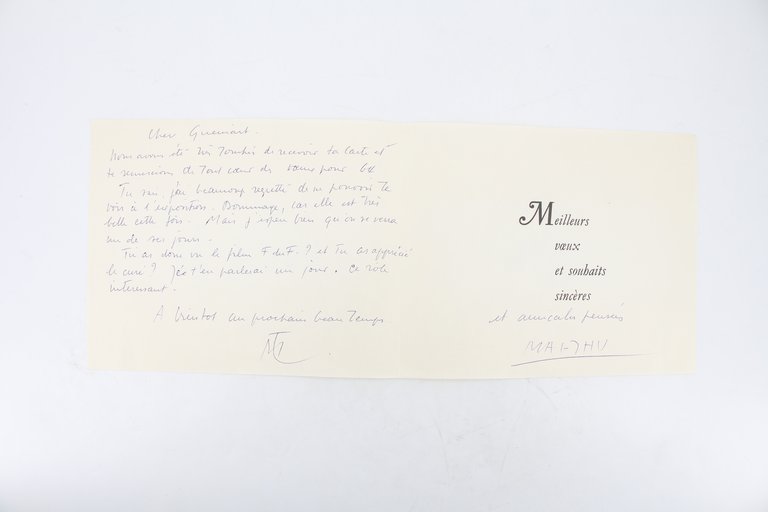 Cher
Nous avons été très touchés de recevoir ta carte et
te remercions de tout cœur des vœux pour 64
Tu sais, j'ai beaucoup regretté de ne pouvoir te
voir à l'exposition. Dommage, car elle est très
belle cette fois. Mais j'espère bien qu'on se verra
un de ses jours.
Tu as donc vu le film F du F. ? et Tu as apprécié
le curé ? t'en parlerai un jour. Ce rôle
intéressant.
A bientôt au prochain beau Temps
Meilleurs
vœux
et souhaits
sincères
et amicales pensées